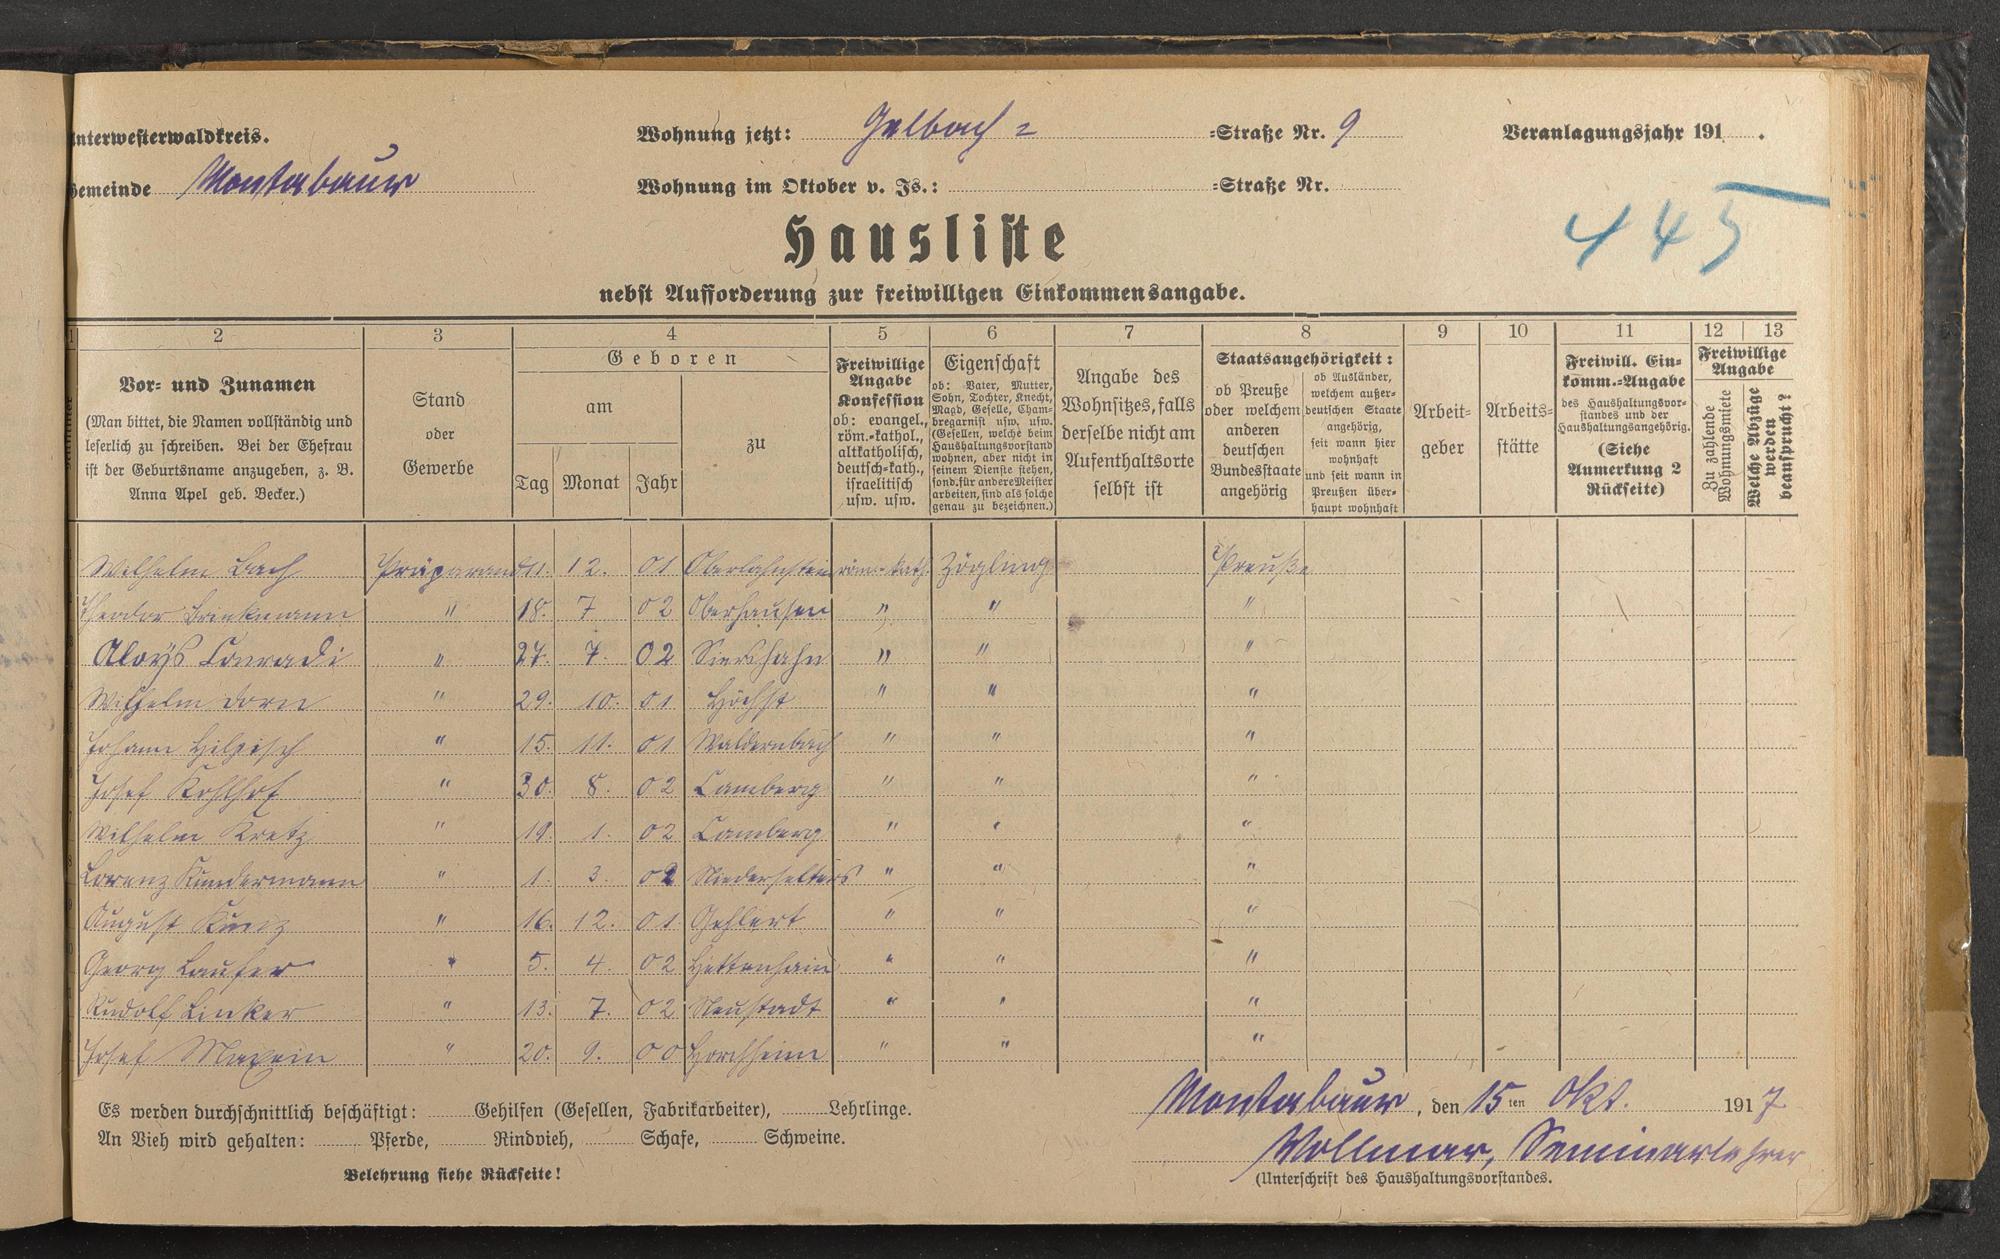 Unterwesterwaldkreis.
Wohnung jetzt: Gelbach= =Straße Nr. 9
Veranlagungsjahr 191 .
Gemeinde Montabaur
Wohnung im Oktober v. Js.: =Straße Nr.
445
Hausliste
nebst Aufforderung zur freiwilligen Einkommensangabe.
1 2 3 4 5 6 7 8 9 10 11 12 13
Vor- und Zunamen
(Man bittet, die Namen vollständig und
leserlich zu schreiben. Bei der Ehefrau
ist der Geburtsname anzugeben, z. B.
Anna Apel geb. Becker.)
Stand
oder
Gewerbe
Geboren
am
Tag Monat Jahr
zu
Freiwillige
Angabe
Konfession
ob: evangel.,
röm.-kathol.,
altkatholisch,
deutsch-kath.,
israelitisch
usw. usw.
Eigenschaft
ob: Vater, Mutter,
Sohn, Tochter, Knecht,
Magd, Geselle, Cham-
bregarnist usw. usw.
(Gesellen, welche beim
Haushaltungsvorstand
wohnen, aber nicht in
seinem Dienste stehen,
sond. für andere Meister
arbeiten, sind als solche
genau zu bezeichnen.)
Angabe des
Wohnsitzes, falls
derselbe nicht am
Aufenthaltsorte
selbst ist
Staatsangehörigkeit:
ob Preuße
oder welchem
anderen
deutschen
Bundesstaate
angehörig
ob Ausländer,
welchem außer-
deutschen Staate
angehörig,
seit wann hier
wohnhaft
und seit wann in
Preußen über-
haupt wohnhaft
Arbeit-
geber
Arbeits-
stätte
Freiwill. Ein-
komm.-Angabe
des Haushaltungsvor-
standes und der
Haushaltungsangehörig.
(Siehe
Anmerkung 2
Rückseite)
Freiwillige
Angabe
Zu zahlende
Wohnungsmiete
Welche Abzüge
werden
beansprucht?
Wilhelm Bach Präparand 11. 12. 01 Oberlahnstein röm.-kath. Zögling Preuße
Theodor Brinkmann " 18. 7 02 Oberhausen " " "
Aloys Conradi " 27. 7. 02 Siershahn " " "
Wilhelm Dorn " 29. 10. 01 Höchst " " "
Johann Hilpisch " 15. 11. 01 Waldernbach " " "
Josef Kohlhof " 30. 8. 02 Camberg " " "
Wilhelm Kretz " 19. 1. 02 Camberg " " "
Lorenz Kundermann " 1. 3. 02 Niederselters " " "
August Kunz " 16. 12. 01 Gehlert " " "
Georg Laufer " 5. 4. 02 Hettenhain " " "
Rudolf Linker " 13. 7. 02 Neustadt " " "
Josef Maxein " 20. 9. 00 Horchheim " " "
Es werden durchschnittlich beschäftigt: Gehilfen (Gesellen, Fabrikarbeiter), Lehrlinge.
An Vieh wird gehalten: Pferde, Rindvieh, Schafe, Schweine.
Belehrung siehe Rückseite!
Montabaur, den 15ten Okt. 1917
Vollmar, Seminarlehrer
(Unterschrift des Haushaltungsvorstandes.